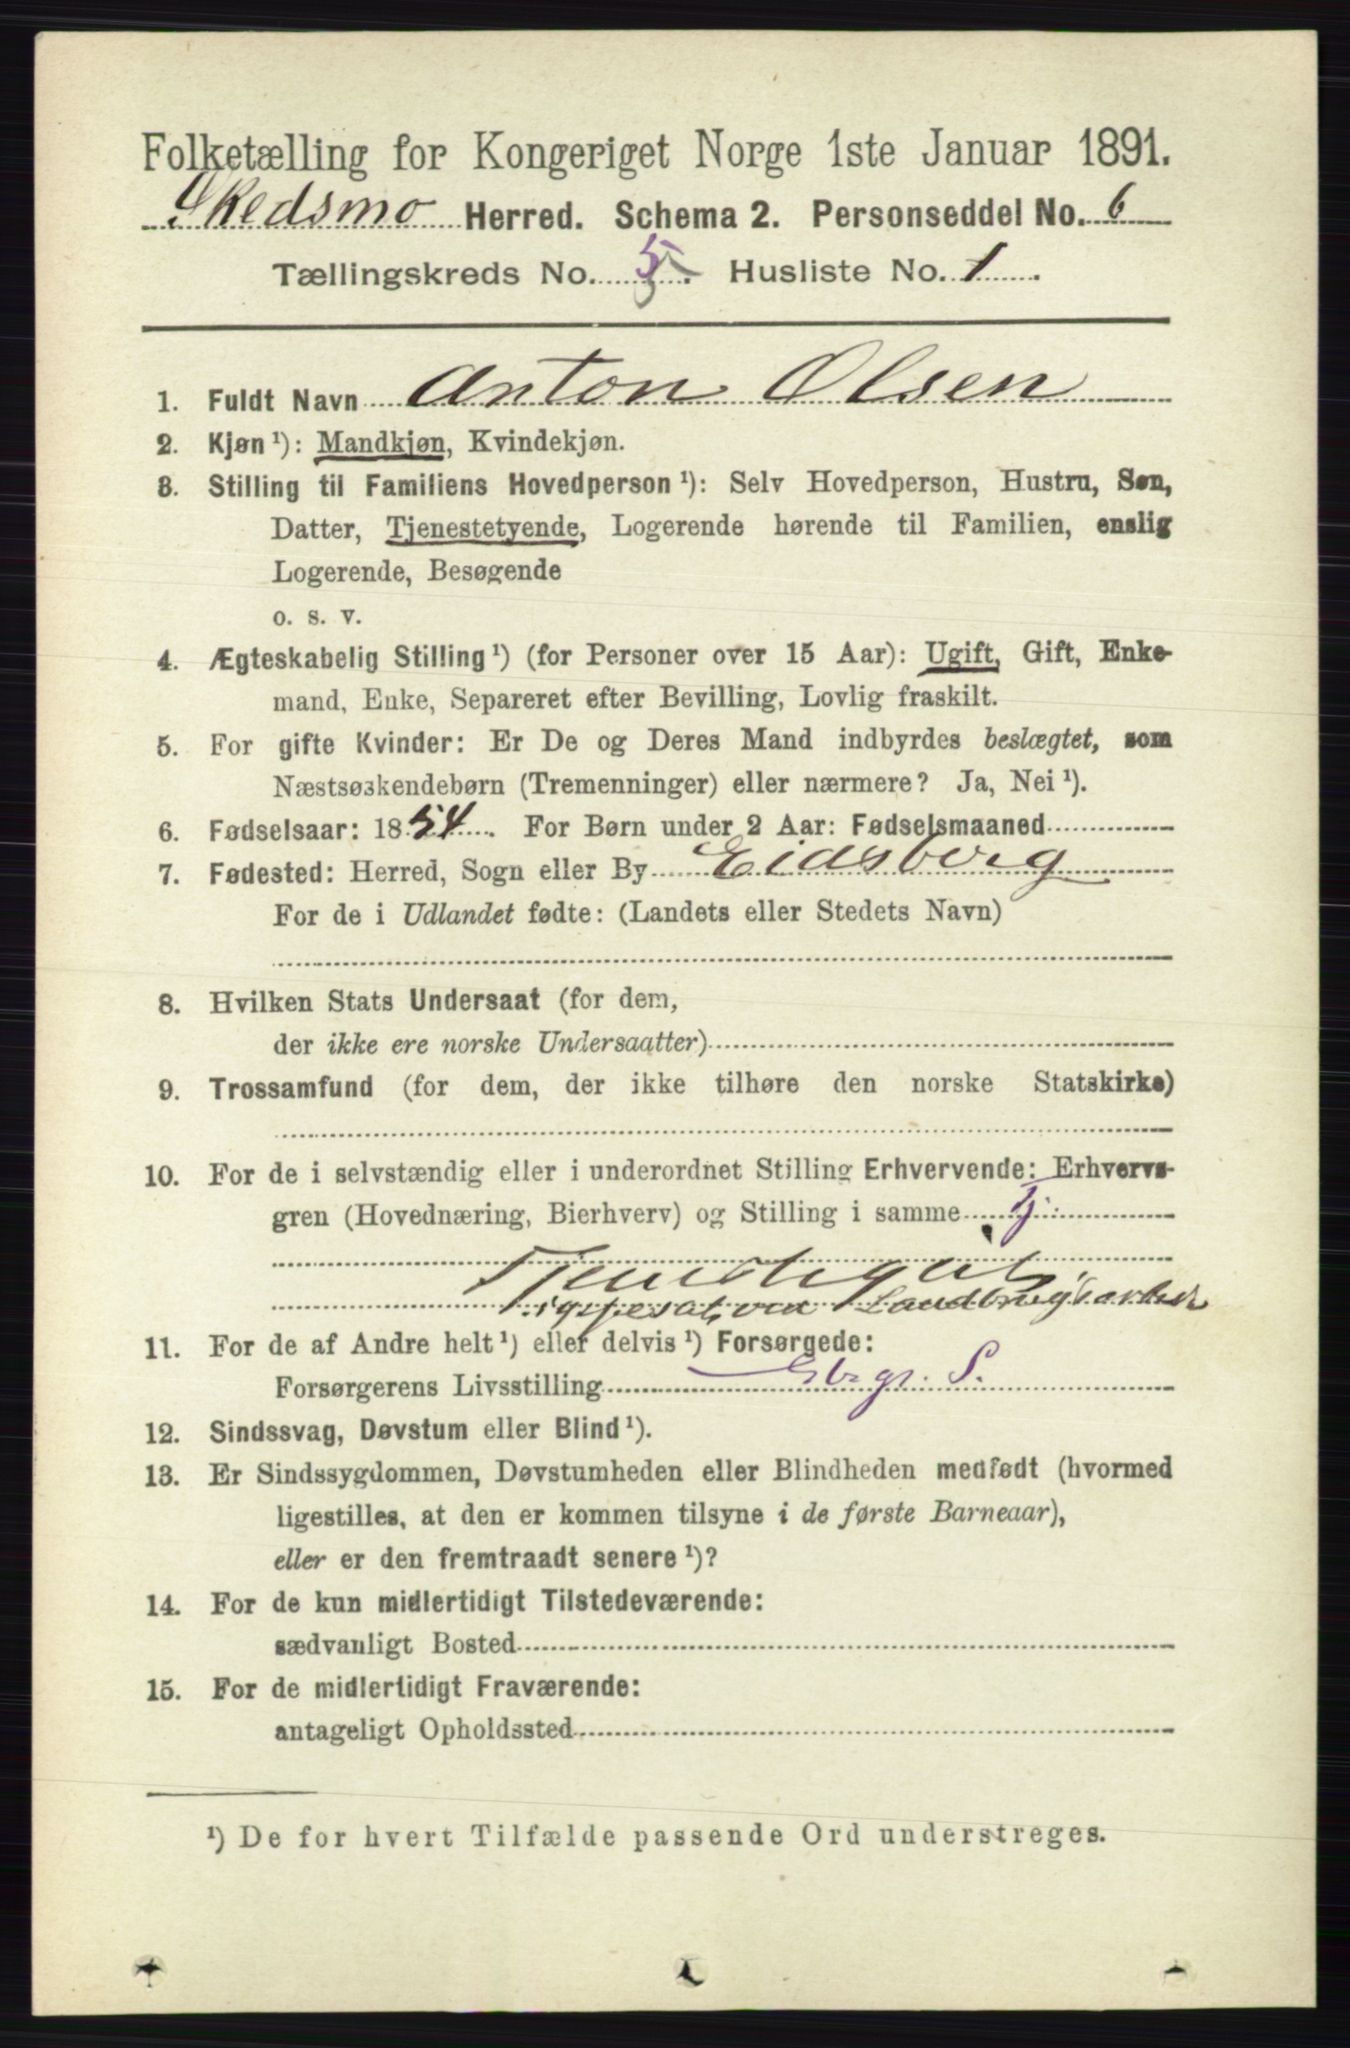 Folketælling for Kongeriget Norge 1ste Januar 1891.
Skedsmo Herred. Schema 2. Personseddel No. 6
Tællingskreds No. 5. Husliste No. 1.
1. Fuldt Navn Anton Olsen
2. Kjøn ¹): Mandkjøn, Kvindekjøn.
3. Stilling til Familiens Hovedperson ¹): Selv Hovedperson, Hustru, Søn,
Datter, Tjenestetyende, Logerende hørende til Familien, enslig
Logerende, Besøgende
o. s. v.
4. Ægteskabelig Stilling ¹) (for Personer over 15 Aar): Ugift, Gift, Enke-
mand, Enke, Separeret efter Bevilling, Lovlig fraskilt.
5. For gifte Kvinder: Er De og Deres Mand indbyrdes beslægtet, som
Næstsøskendebørn (Tremenninger) eller nærmere? Ja, Nei ¹).
6. Fødselsaar: 1854. For Børn under 2 Aar: Fødselsmaaned
7. Fødested: Herred, Sogn eller By Eidsberg
For de i Udlandet fødte: (Landets eller Stedets Navn)
8. Hvilken Stats Undersaat (for dem,
der ikke ere norske Undersaatter)
9. Trossamfund (for dem, der ikke tilhøre den norske Statskirke)
10. For de i selvstændig eller i underordnet Stilling Erhvervende: Erhvervs-
gren (Hovednæring, Bierhverv) og Stilling i samme Tj.
Tjenstegut
ved Landbrugsarbeide
11. For de af Andre helt ¹) eller delvis ¹) Forsørgede:
Forsørgerens Livsstilling Gbgr. S.
12. Sindssvag, Døvstum eller Blind ¹).
13. Er Sindssygdommen, Døvstumheden eller Blindheden medfødt (hvormed
ligestilles, at den er kommen tilsyne i de første Barneaar),
eller er den fremtraadt senere ¹)?
14. For de kun midlertidigt Tilstedeværende:
sædvanligt Bosted
15. For de midlertidigt Fraværende:
antageligt Opholdssted
¹) De for hvert Tilfælde passende Ord understreges.